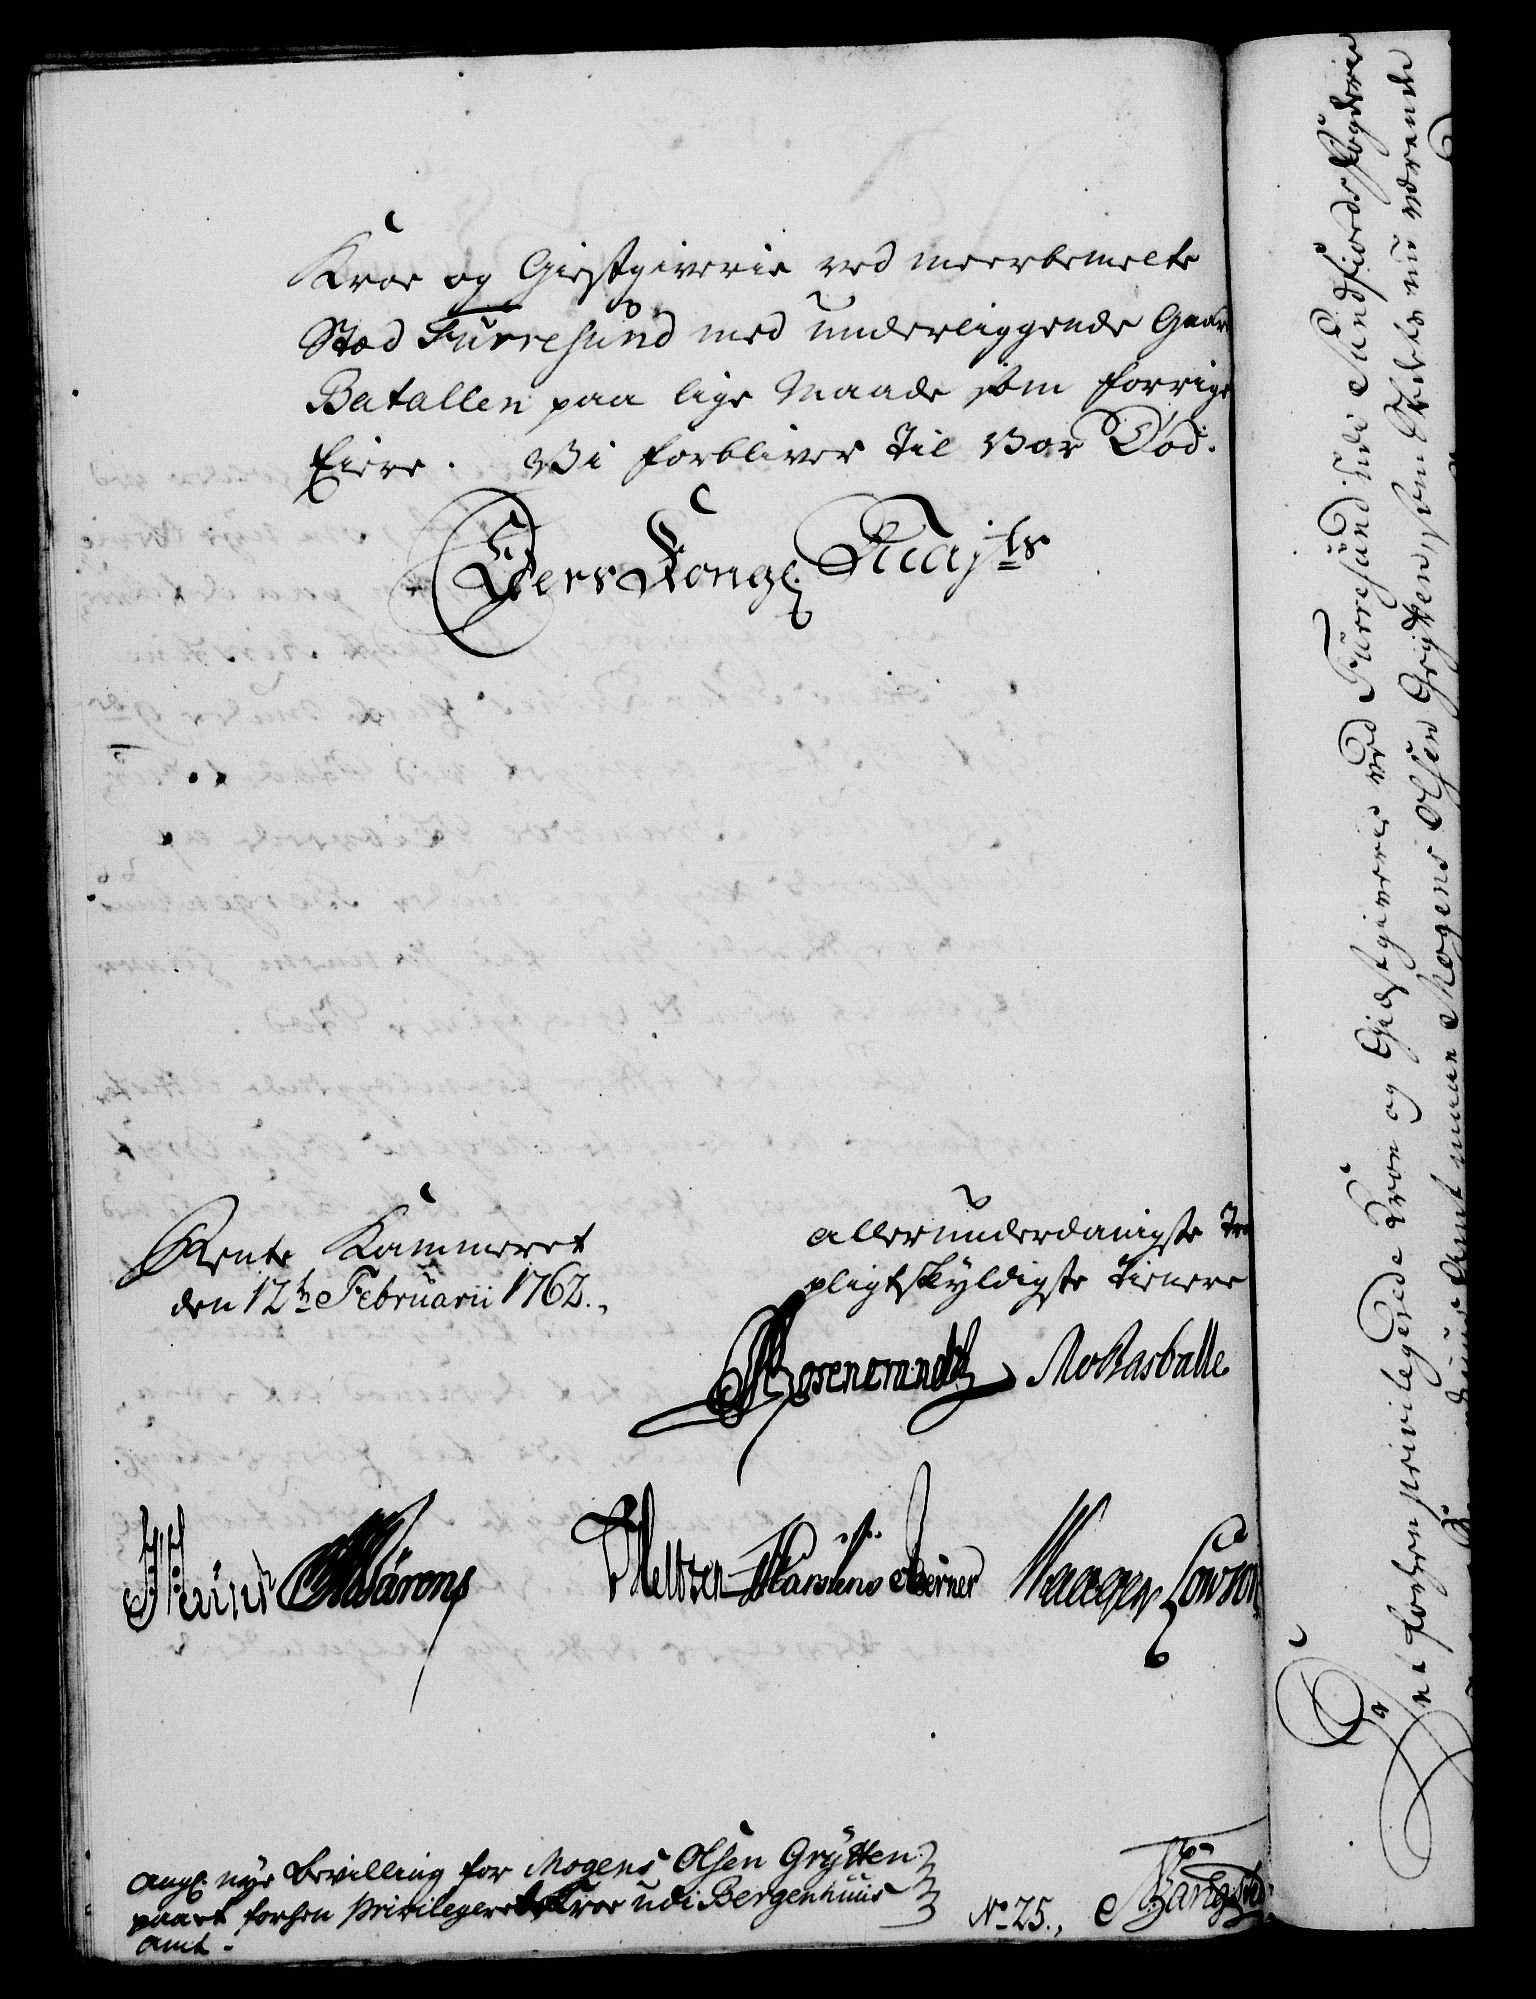 Kroe og Giestgiverie ved meerbemelte
Stæd Furresund med underliggende Gaar
Batallen paa lige Maade som forrige
Eiere. Vi forbliver til Vor Død.
Eders Kongl. Mayts
Rente Kammeret
den 12te Februarii 1762.
allerunderdanigste Tro
pligtskyldigste Tienere
Rosencrandtz
Hünt
Meltzen Karstens Berner Waager Lowson
Ang. nye Bevilling for Mogens Olsen Grÿtten
paa et forhen Privilegeret Kroe udi Bergenhuus
Amt.
No 25.,
Det forhen privilegerede Kroe og Giæstgiverie ved Furresund udi Sundfiords Fogderie
Amtmaan Mogens Olsen Grÿtten, som Stedets nu værende